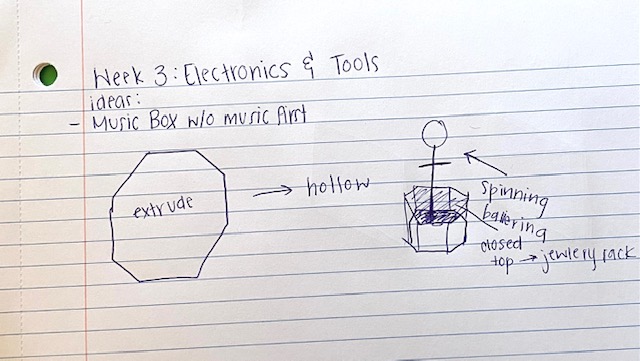 Week 3: Electronics & Tools
ideas:
- Music Box w/o music first
extrude
→ hollow
spinning
ballering
closed
top → jewlery rack